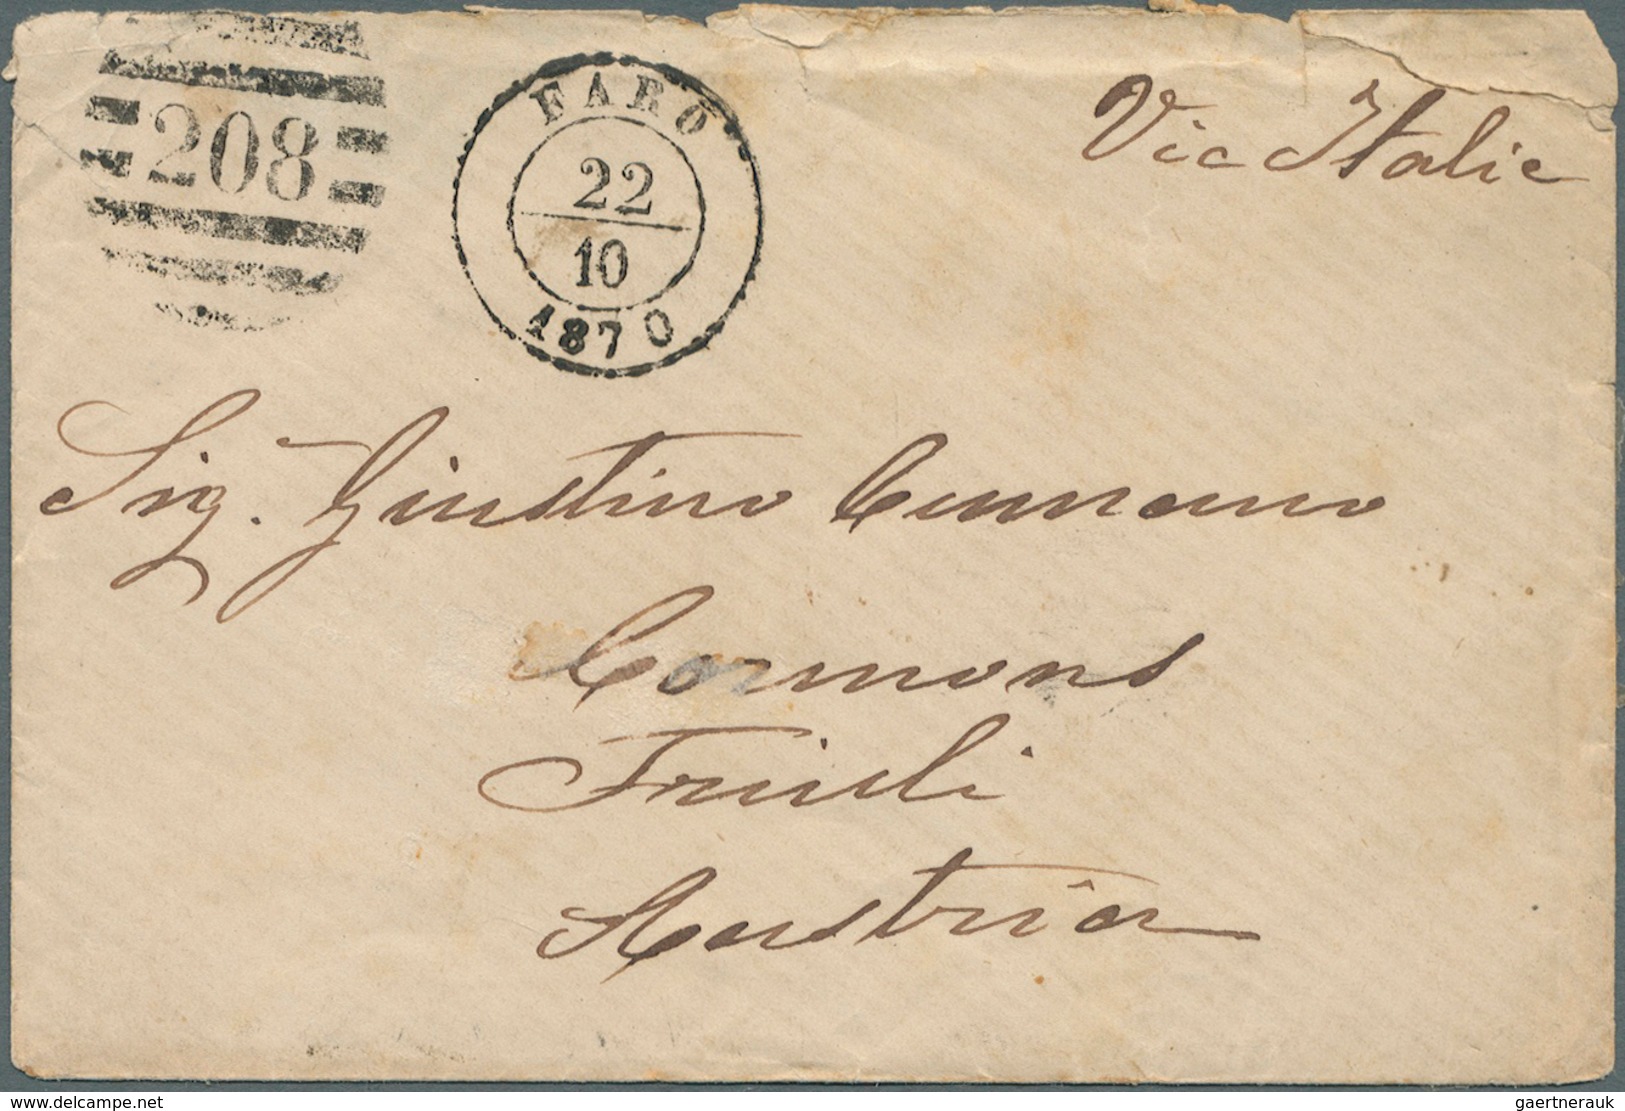 208
FARO
22
10
1870
Via Italie
Sig. Giustino Cumano
Cormons
Friuli
Austria
www.delcampe.com
gaertnerauk